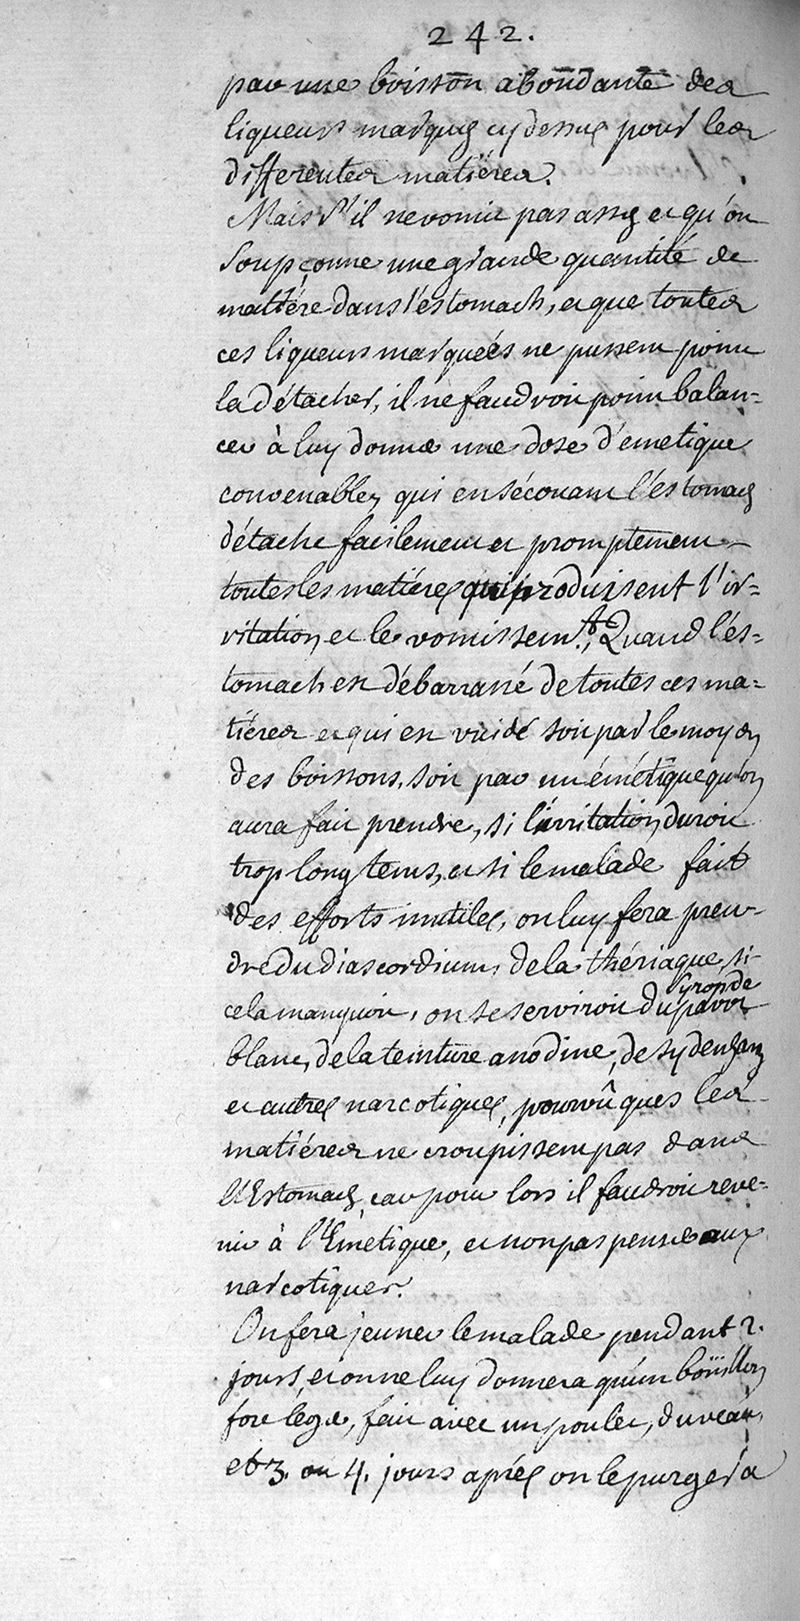 242.
par une boisson abondante des
liqueurs marquées cy dessus pour les
differentes matiéres.
Mais s'il ne vomit pas assez et qu'on
soupçonne une grande quantité de
mattére dans l'éstomach, et que toutes
ces liqueurs marqueés ne pussent point
la détacher, il ne faudroit point balan=
cer à luy donner une dose d'emetique
convenable, qui en sécouant l'éstomach
détache facilement et promptement
toutes les matiéres qui produisent l'ir=
ritation, et le vomissemt. Quand l'és=
tomach est débarrassé de toutes ces ma=
tiéres et qui est vuidé soit par le moyen
des boissons, soit par un émétique qu'on
aura fait prendre, si l'irritation duroit
trop longtems, et si le malade fait
des efforts inutiles, on luy fera pren-
dre du diascordium, de la thériaque, si
cela manquoit, on se serviroit du syrop de pavot
blanc, de la teinture anodine, de sydenham
et autres narcotiques, pourvû ques les
matiéres ne croupissent pas dans
l'Estomach, car pour lors il faudroit reve=
nir à l'Emétique, et non pas penser aux
narcotiques.
On fera jeuner le malade pendant 2.
jours, et on ne luy donnera qu'un boüillon
fort léger, fait avec un poulet, du veau,
et 3. ou 4. jours aprés on le purgera